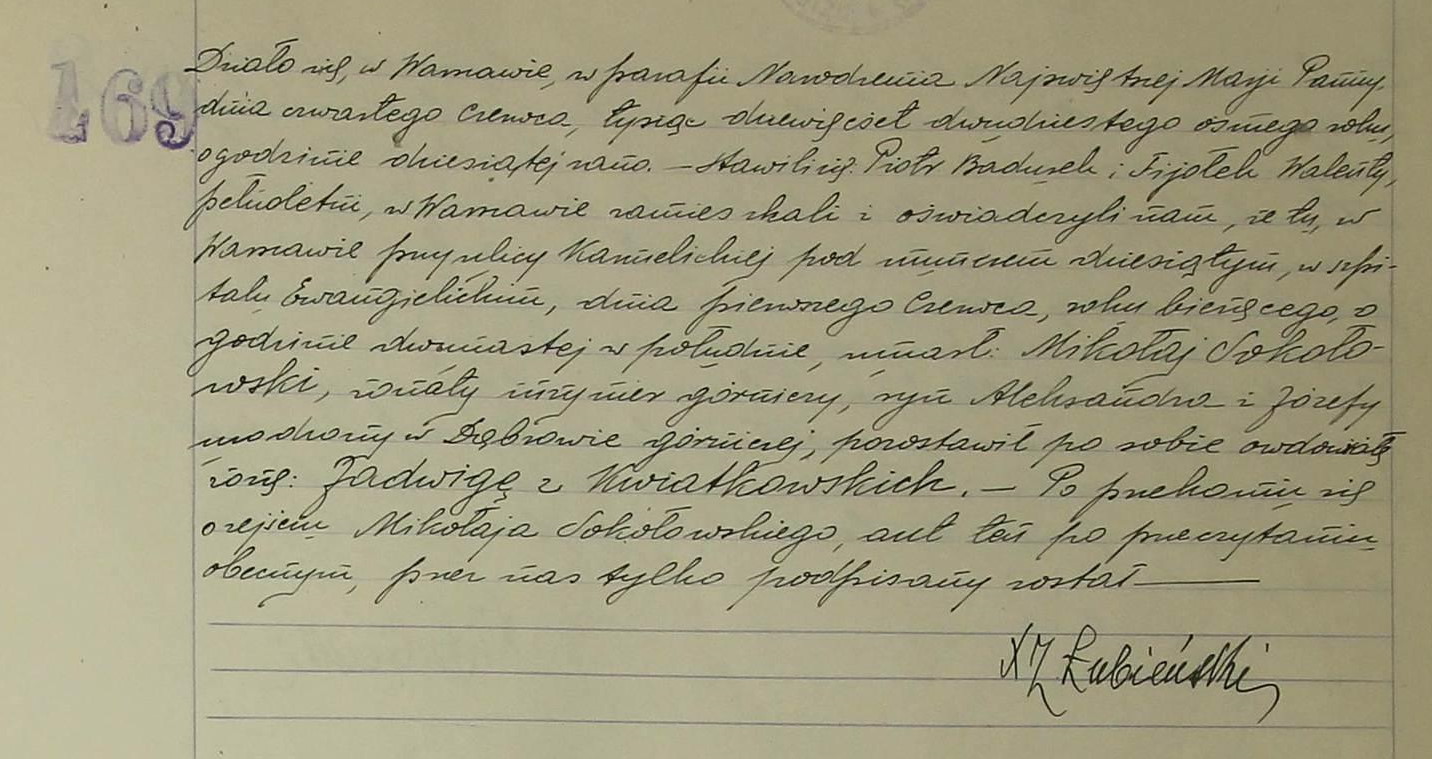 169
Działo się, w Warszawie, w parafii Narodzenia Najświętszej Maryi Panny,
dnia czwartego Czerwca, tysiąc dziewięćset dwudziestego ósmego roku,
o godzinie dziesiątej rano. — Stawili się: Piotr Baduszek i Fijołek Walenty,
pełnoletni, w Warszawie zamieszkali i oświadczyli nam, że tu, w
Warszawie przy ulicy Karmelickiej pod numerem dziesiątym, w szpi-
talu Ewangielickim, dnia pierwszego Czerwca, roku bieżącego, o
godzinie dwunastej w południe, umarł: Mikołaj Sokoło-
wski, żonaty inżynier górniczy, syn Aleksandra i Józefy
urodzony w Dąbrowie górniczej, pozostawił po sobie owdowiałą
żonę: Jadwigę z Kwiatkowskich. — Po przekonaniu się
o zejściu Mikołaja Sokołowskiego, akt ten po przeczytaniu
obecnym, przez nas tylko podpisany został —
X Z Łubieński